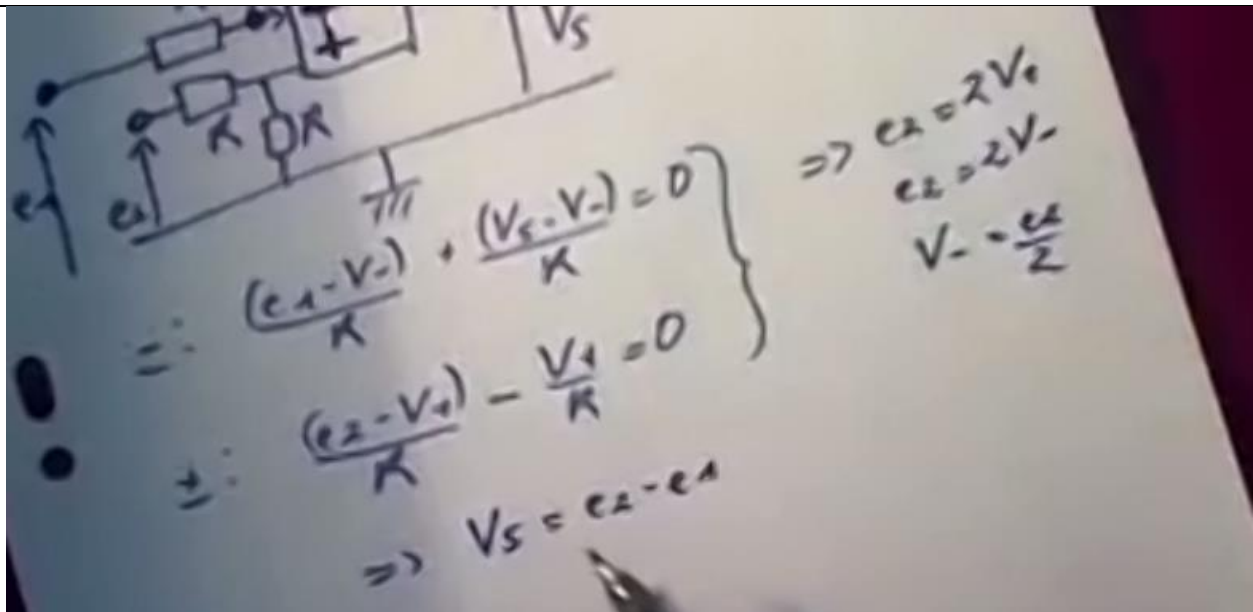 Vs
R R
e1 e2
-: (e1-V-)/R + (Vs-V-)/R = 0
+: (e2-V+)/R - V+/R = 0
=> Vs = e2-e1
=> e2 = 2V+
e2 = 2V-
V- = e2/2